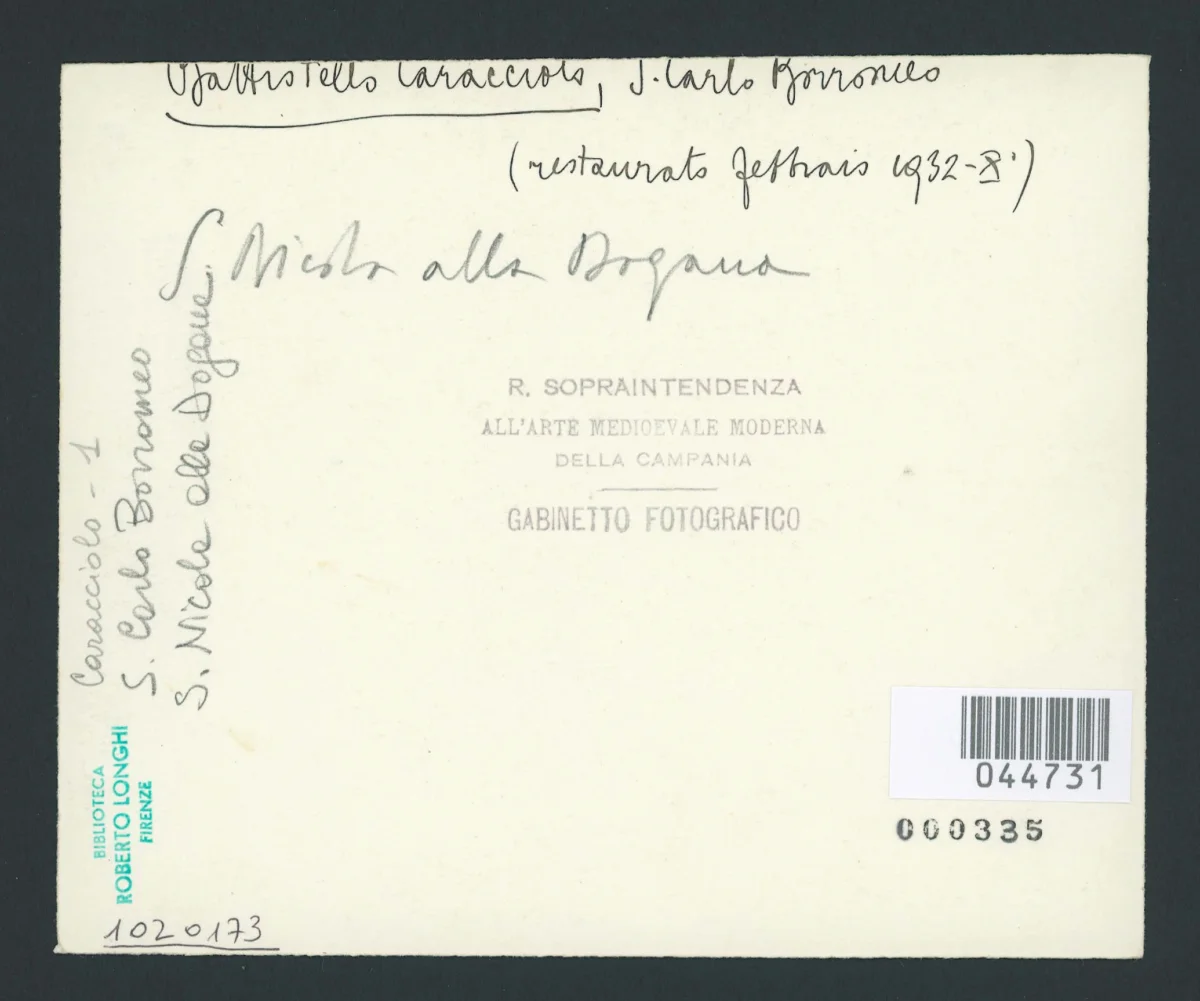 Battistello Caracciolo, S. Carlo Borromeo
(restaurato febbraio 1932-X.)
S. Nicola alla Dogana
R. SOPRAINTENDENZA
ALL'ARTE MEDIOEVALE MODERNA
DELLA CAMPANIA
GABINETTO FOTOGRAFICO
Caracciolo - 1
S. Carlo Borromeo
S. Nicola alla Dogana
BIBLIOTECA
ROBERTO LONGHI
FIRENZE
1020173
044731
000335